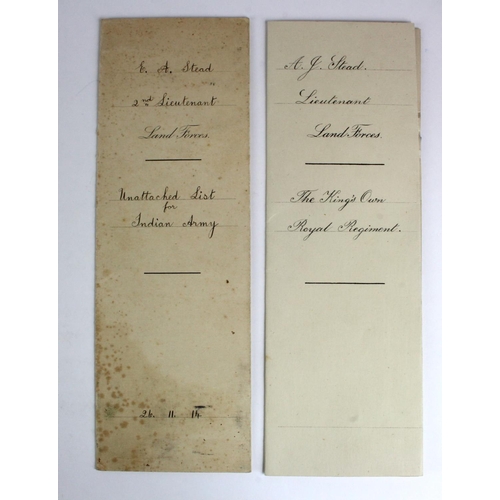 E. A. Stead
2nd Lieutenant
Land Forces.
Unattached List
for
Indian Army
26. 11. 14
A. J. Stead.
Lieutenant
Land Forces.
The King's Own
Royal Regiment.